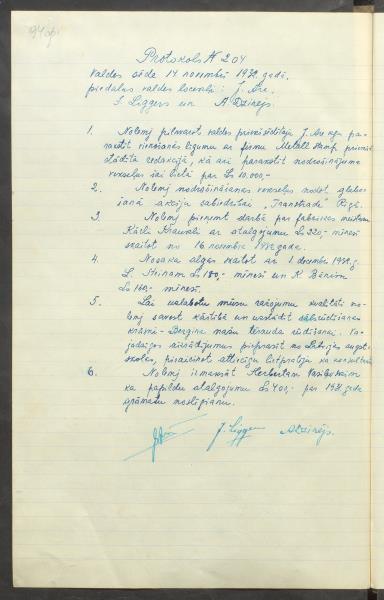 Protokols № 204
Valdes sēde 14 novembrī 1938. gadā,
piedalas valdes locekļi: J. Are,
J. Liggers un A. Dzinējs.
1. Nolemj pilnvarot valdes priekšsēdētāju J. Are kgu pa-
rakstīt vienošanās līgumu ar firmu Metall
redakcijā, kā arī parakstīt nodrošinājuma
vekseļus šai lietā par Ls 10.000,-
2. Nolemj nodrošināšanas vekseļus nodot glabā-
šanā akciju sabiedrībai "Transtrade" Rīgā.
3. Nolemj pieņemt darbā par fabrikas meistaru
Kārli ar atalgojumu Ls 220,- mēnesī
skaitot no 16 novembra 1938 gada.
4. Nosaka algas skaitot ar 1 decembri 1938. g.
L. Ls 180,- mēnesī un K. Bēniņam
Ls 160,- mēnesī.
5. Lai uzlabotu mūsu ražojumu kvalitāti no-
lemj savest kārtībā un uzstādīt
krāsni - mašu tērauda rūdīšanai. Va-
jadzīgos aizrādījumus pieprasīt no Latvijas augst-
skolas, pieaicinot attiecīgu lietpratēju kā konsultantu
6. Nolemj izmaksāt Herbertam
kā papildu atalgojumu Ls 400,- par 1938. gada
grāmatu noslēgšanu.
J. Liggers A. Dzinējs.